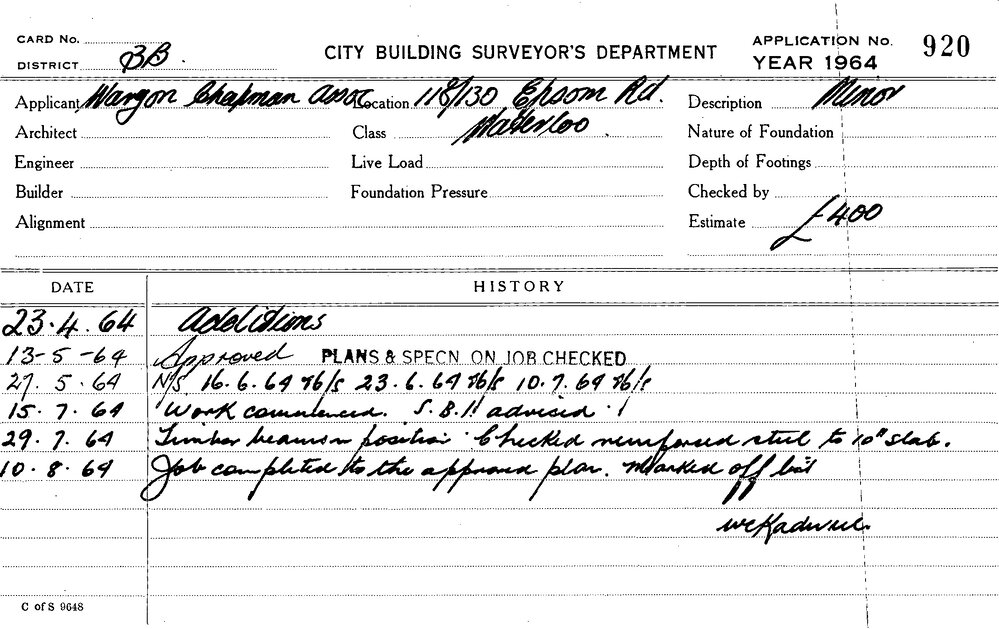 CARD No.
DISTRICT BB.
CITY BUILDING SURVEYOR'S DEPARTMENT
APPLICATION No. 920
YEAR 1964
Applicant Wargon Chapman Assoc Location 118/130 Epsom Rd. Description Minor
Architect Class Waterloo. Nature of Foundation
Engineer Live Load Depth of Footings
Builder Foundation Pressure Checked by
Alignment Estimate £400
DATE HISTORY
23.4.64 Additions
13-5-64 Approved PLANS & SPECN ON JOB CHECKED
27.5.64 N/S 16.6.64 N/S 23.6.64 N/S 10.7.64 N/S
15.7.64 Work commenced. S.B.I. advised.
29.7.64 Timber beams in position. Checked reinforced steel to 10" slab.
10.8.64 Job completed to the approved plan. Marked off list
C of S 9648